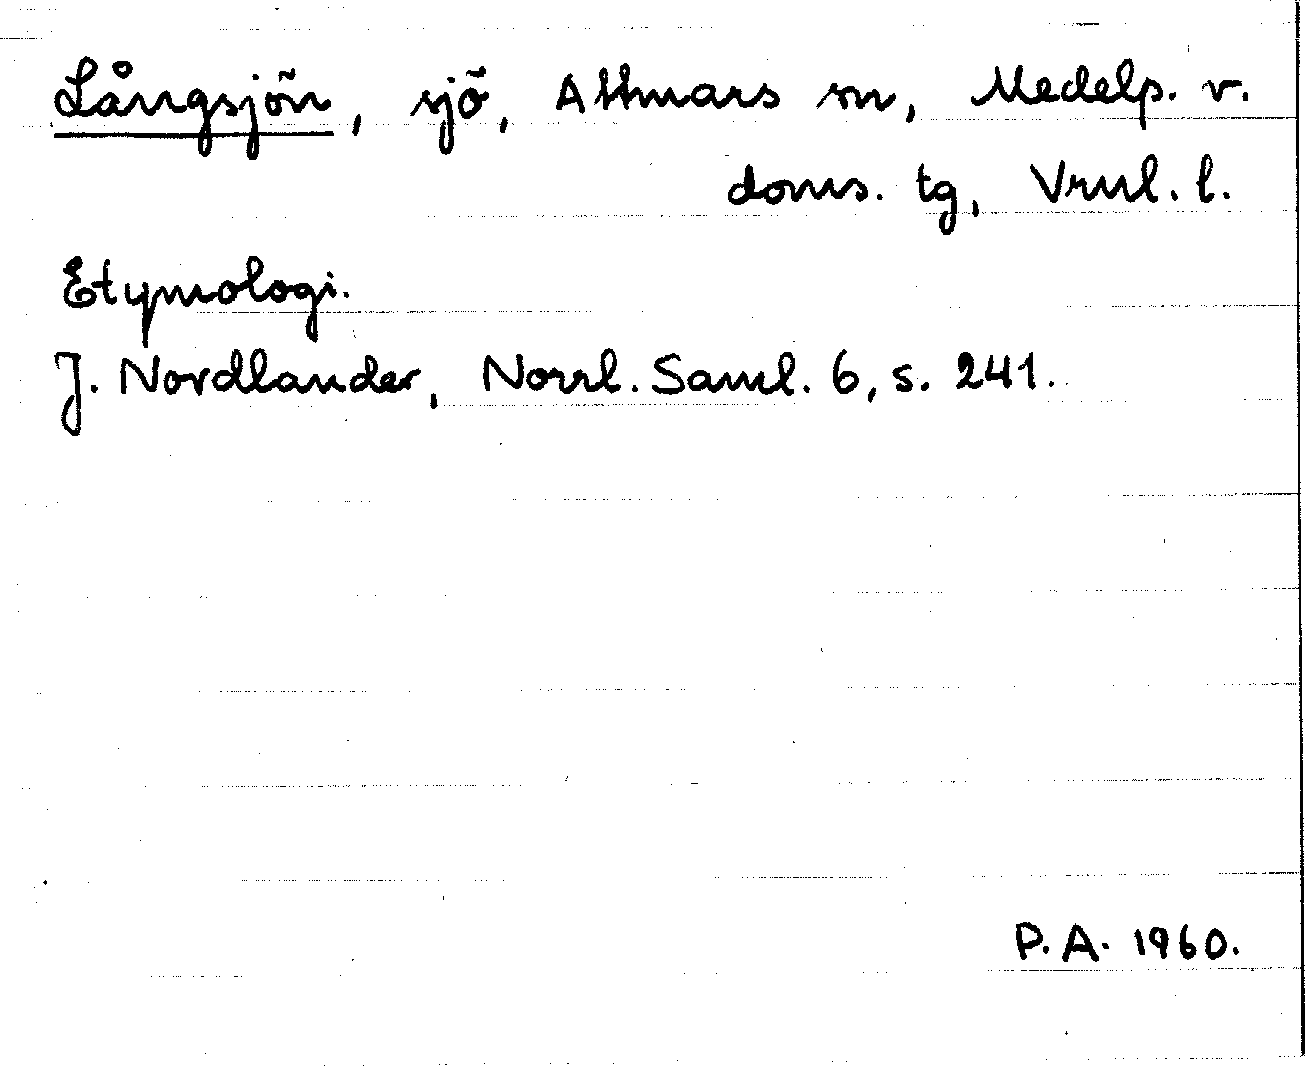 Långsjön, sjö, Attmars sn, Medelp. v.
doms. tg, Vrnl. l.
Etymologi.
J. Nordlander, Norrl. Saml. 6, s. 241.
P.A. 1960.